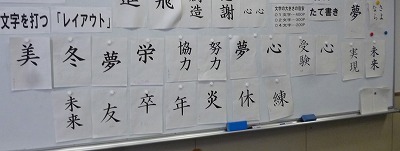 飛
創造
感謝
心
心
文字の大きさの目安
たて書き
夢
文字を打つ「レイアウト」
美
冬
夢
栄
協力
努力
夢
心
受験
実現
未来
未来
友
卒
年
炎
休
練